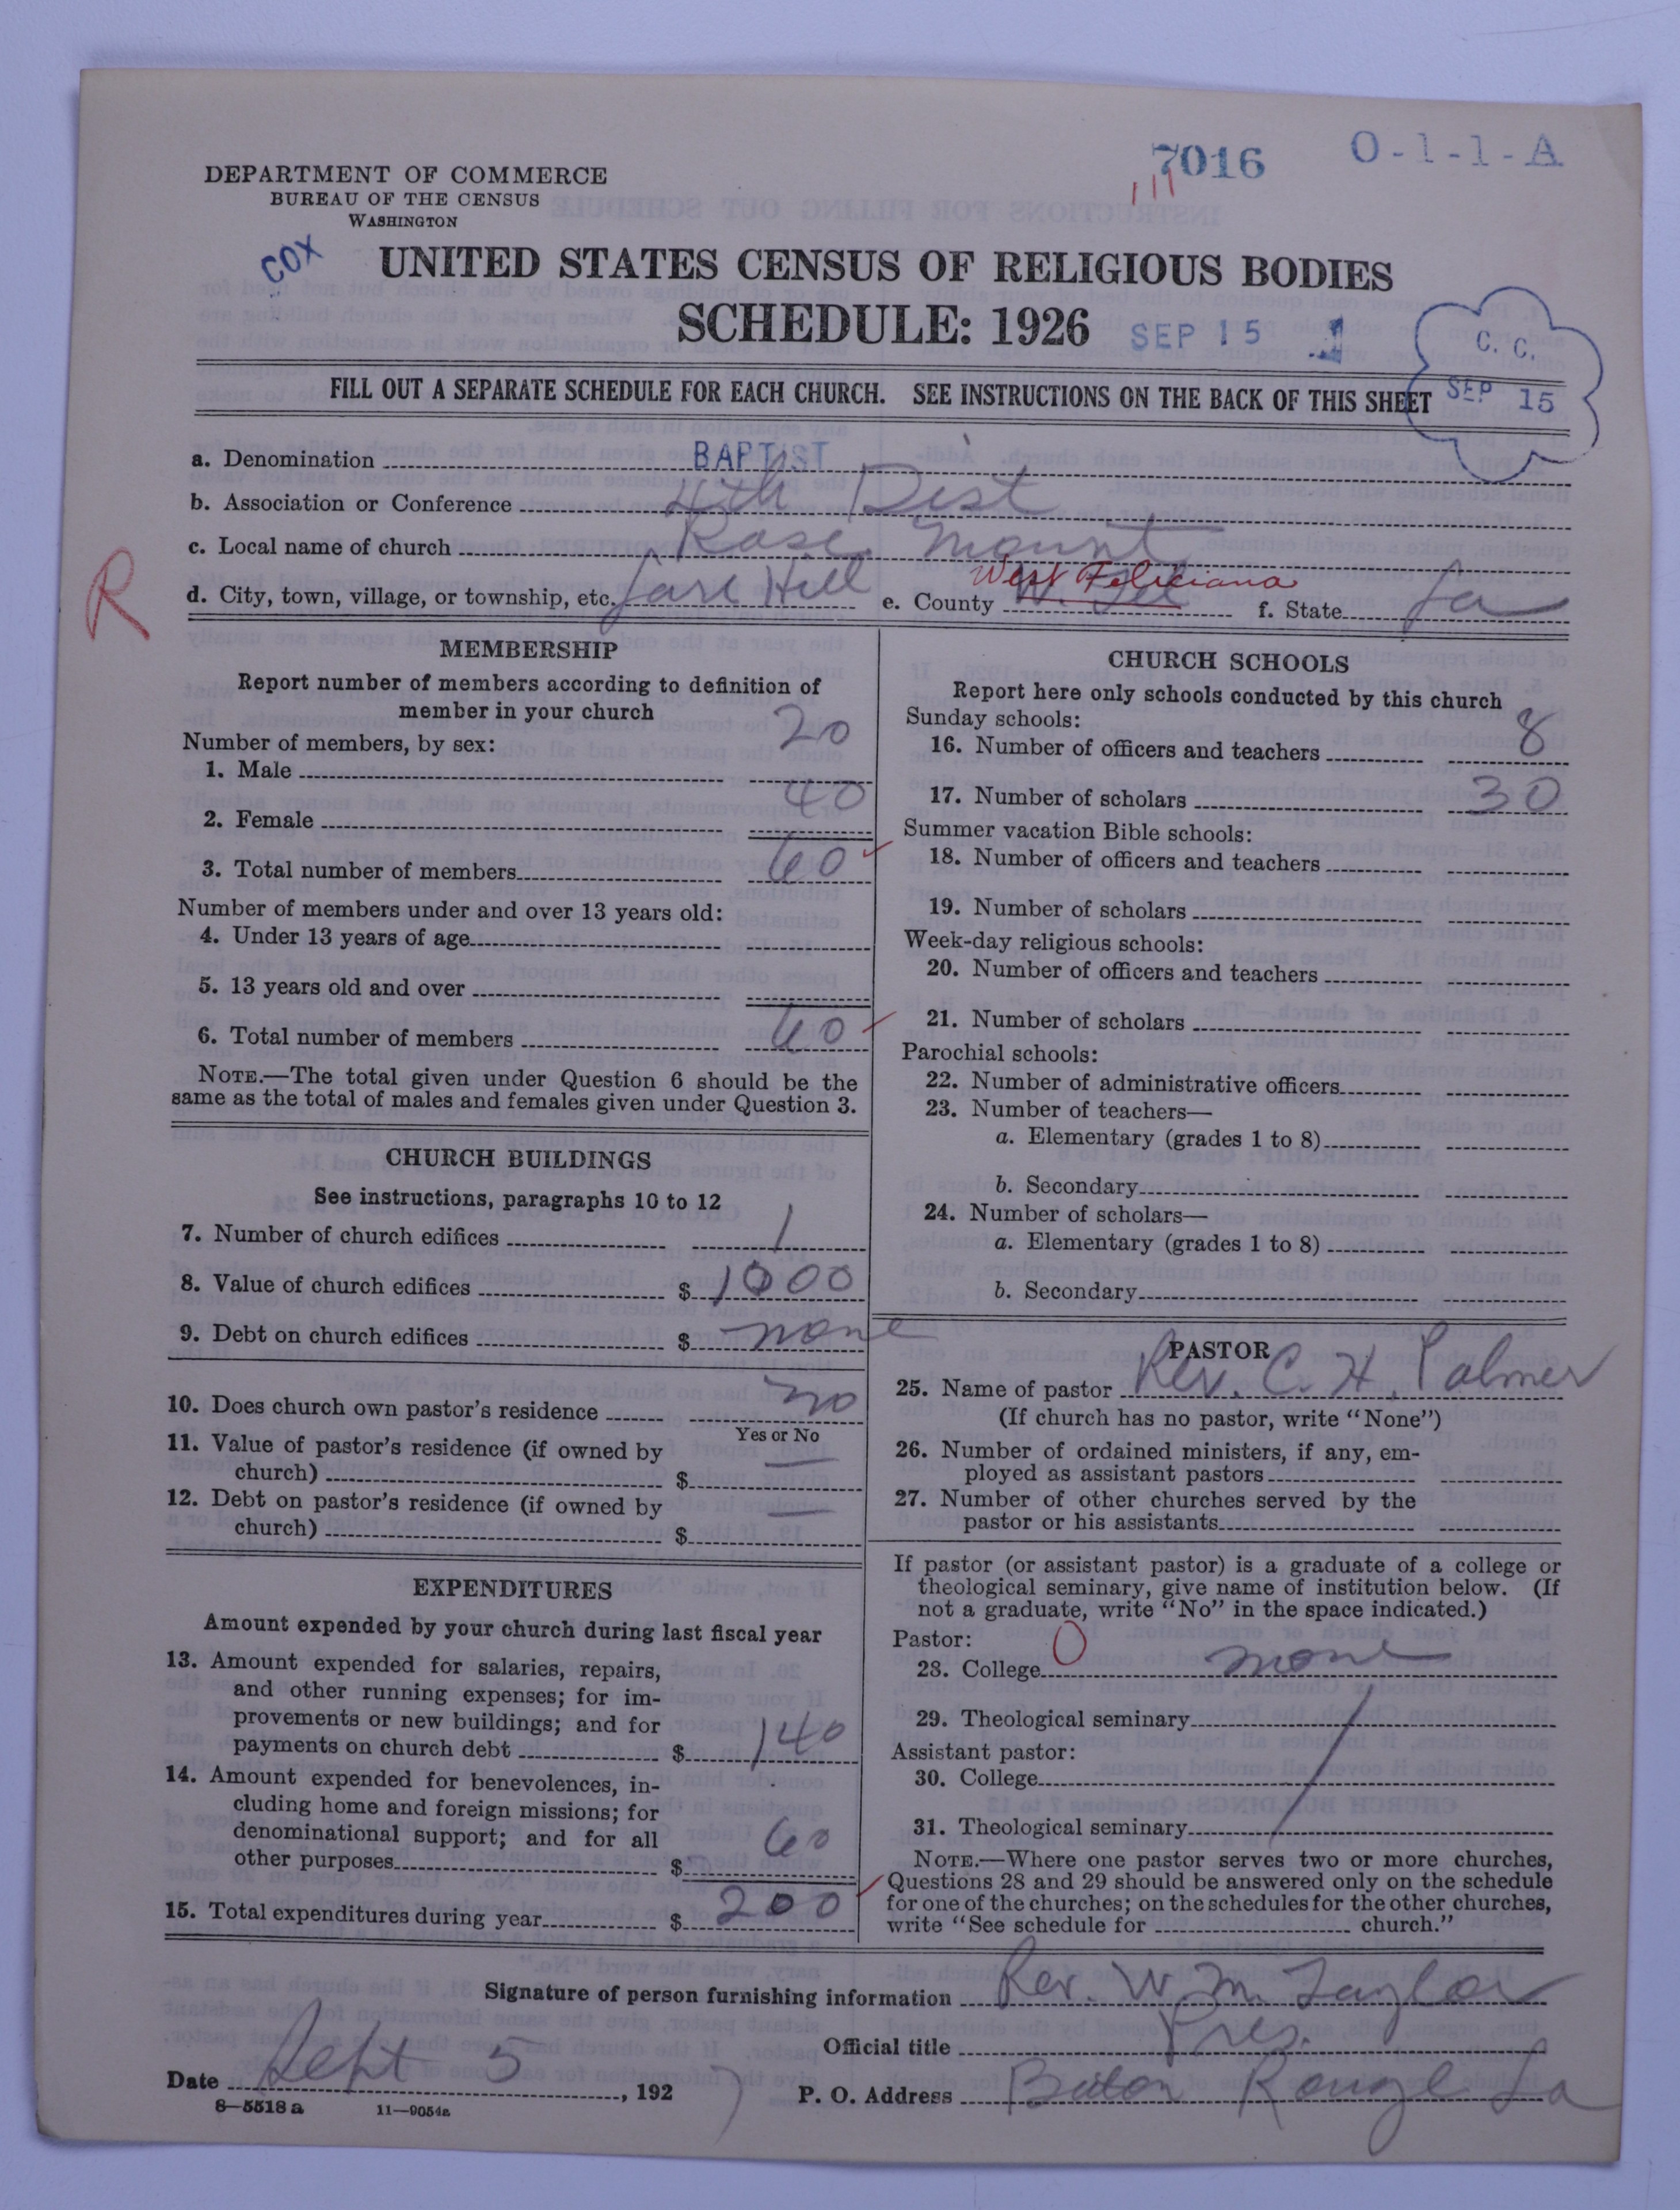 7016
O-1-1-A
DEPARTMENT OF COMMERCE
BUREAU OF THE CENSUS
WASHINGTON
COX
UNITED STATES CENSUS OF RELIGIOUS BODIES
SCHEDULE: 1926
SEP 15 1
C. C.
SEP 15
FILL OUT A SEPARATE SCHEDULE FOR EACH CHURCH. SEE INSTRUCTIONS ON THE BACK OF THIS SHEET
a. Denomination BAPTIST
b. Association or Conference 4th Dist
c. Local name of church Rose Mount
R
West Feliciana
d. City, town, village, or township, etc. Hill e. County W. Fel f. State La
MEMBERSHIP
Report number of members according to definition of
member in your church
Number of members, by sex:
1. Male 20
2. Female 40
3. Total number of members 60
Number of members under and over 13 years old:
4. Under 13 years of age
5. 13 years old and over
6. Total number of members 60
NOTE.—The total given under Question 6 should be the
same as the total of males and females given under Question 3.
CHURCH BUILDINGS
See instructions, paragraphs 10 to 12
7. Number of church edifices 1
8. Value of church edifices $ 1000
9. Debt on church edifices $ none
10. Does church own pastor's residence no
Yes or No
11. Value of pastor's residence (if owned by
church) $ —
12. Debt on pastor's residence (if owned by
church) $ —
EXPENDITURES
Amount expended by your church during last fiscal year
13. Amount expended for salaries, repairs,
and other running expenses; for im-
provements or new buildings; and for
payments on church debt $ 140
14. Amount expended for benevolences, in-
cluding home and foreign missions; for
denominational support; and for all
other purposes $ 60
15. Total expenditures during year $ 200
CHURCH SCHOOLS
Report here only schools conducted by this church
Sunday schools:
16. Number of officers and teachers 8
17. Number of scholars 30
Summer vacation Bible schools:
18. Number of officers and teachers
19. Number of scholars
Week-day religious schools:
20. Number of officers and teachers
21. Number of scholars
Parochial schools:
22. Number of administrative officers
23. Number of teachers—
a. Elementary (grades 1 to 8)
b. Secondary
24. Number of scholars—
a. Elementary (grades 1 to 8)
b. Secondary
PASTOR
25. Name of pastor Rev. C. H. Palmer
(If church has no pastor, write "None")
26. Number of ordained ministers, if any, em-
ployed as assistant pastors
27. Number of other churches served by the
pastor or his assistants
If pastor (or assistant pastor) is a graduate of a college or
theological seminary, give name of institution below. (If
not a graduate, write "No" in the space indicated.)
Pastor:
28. College 0 none
29. Theological seminary
Assistant pastor:
30. College
31. Theological seminary
NOTE.—Where one pastor serves two or more churches,
Questions 28 and 29 should be answered only on the schedule
for one of the churches; on the schedules for the other churches,
write "See schedule for church."
Signature of person furnishing information Rev. W. M. Taylor
Official title Pres.
Date Sept 5, 192 7 P. O. Address Baton Rouge La
8—5518 a 11—9054a